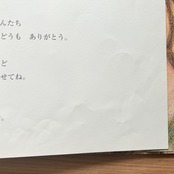 んたち
どうも ありがとう。
ど
せてね。
。